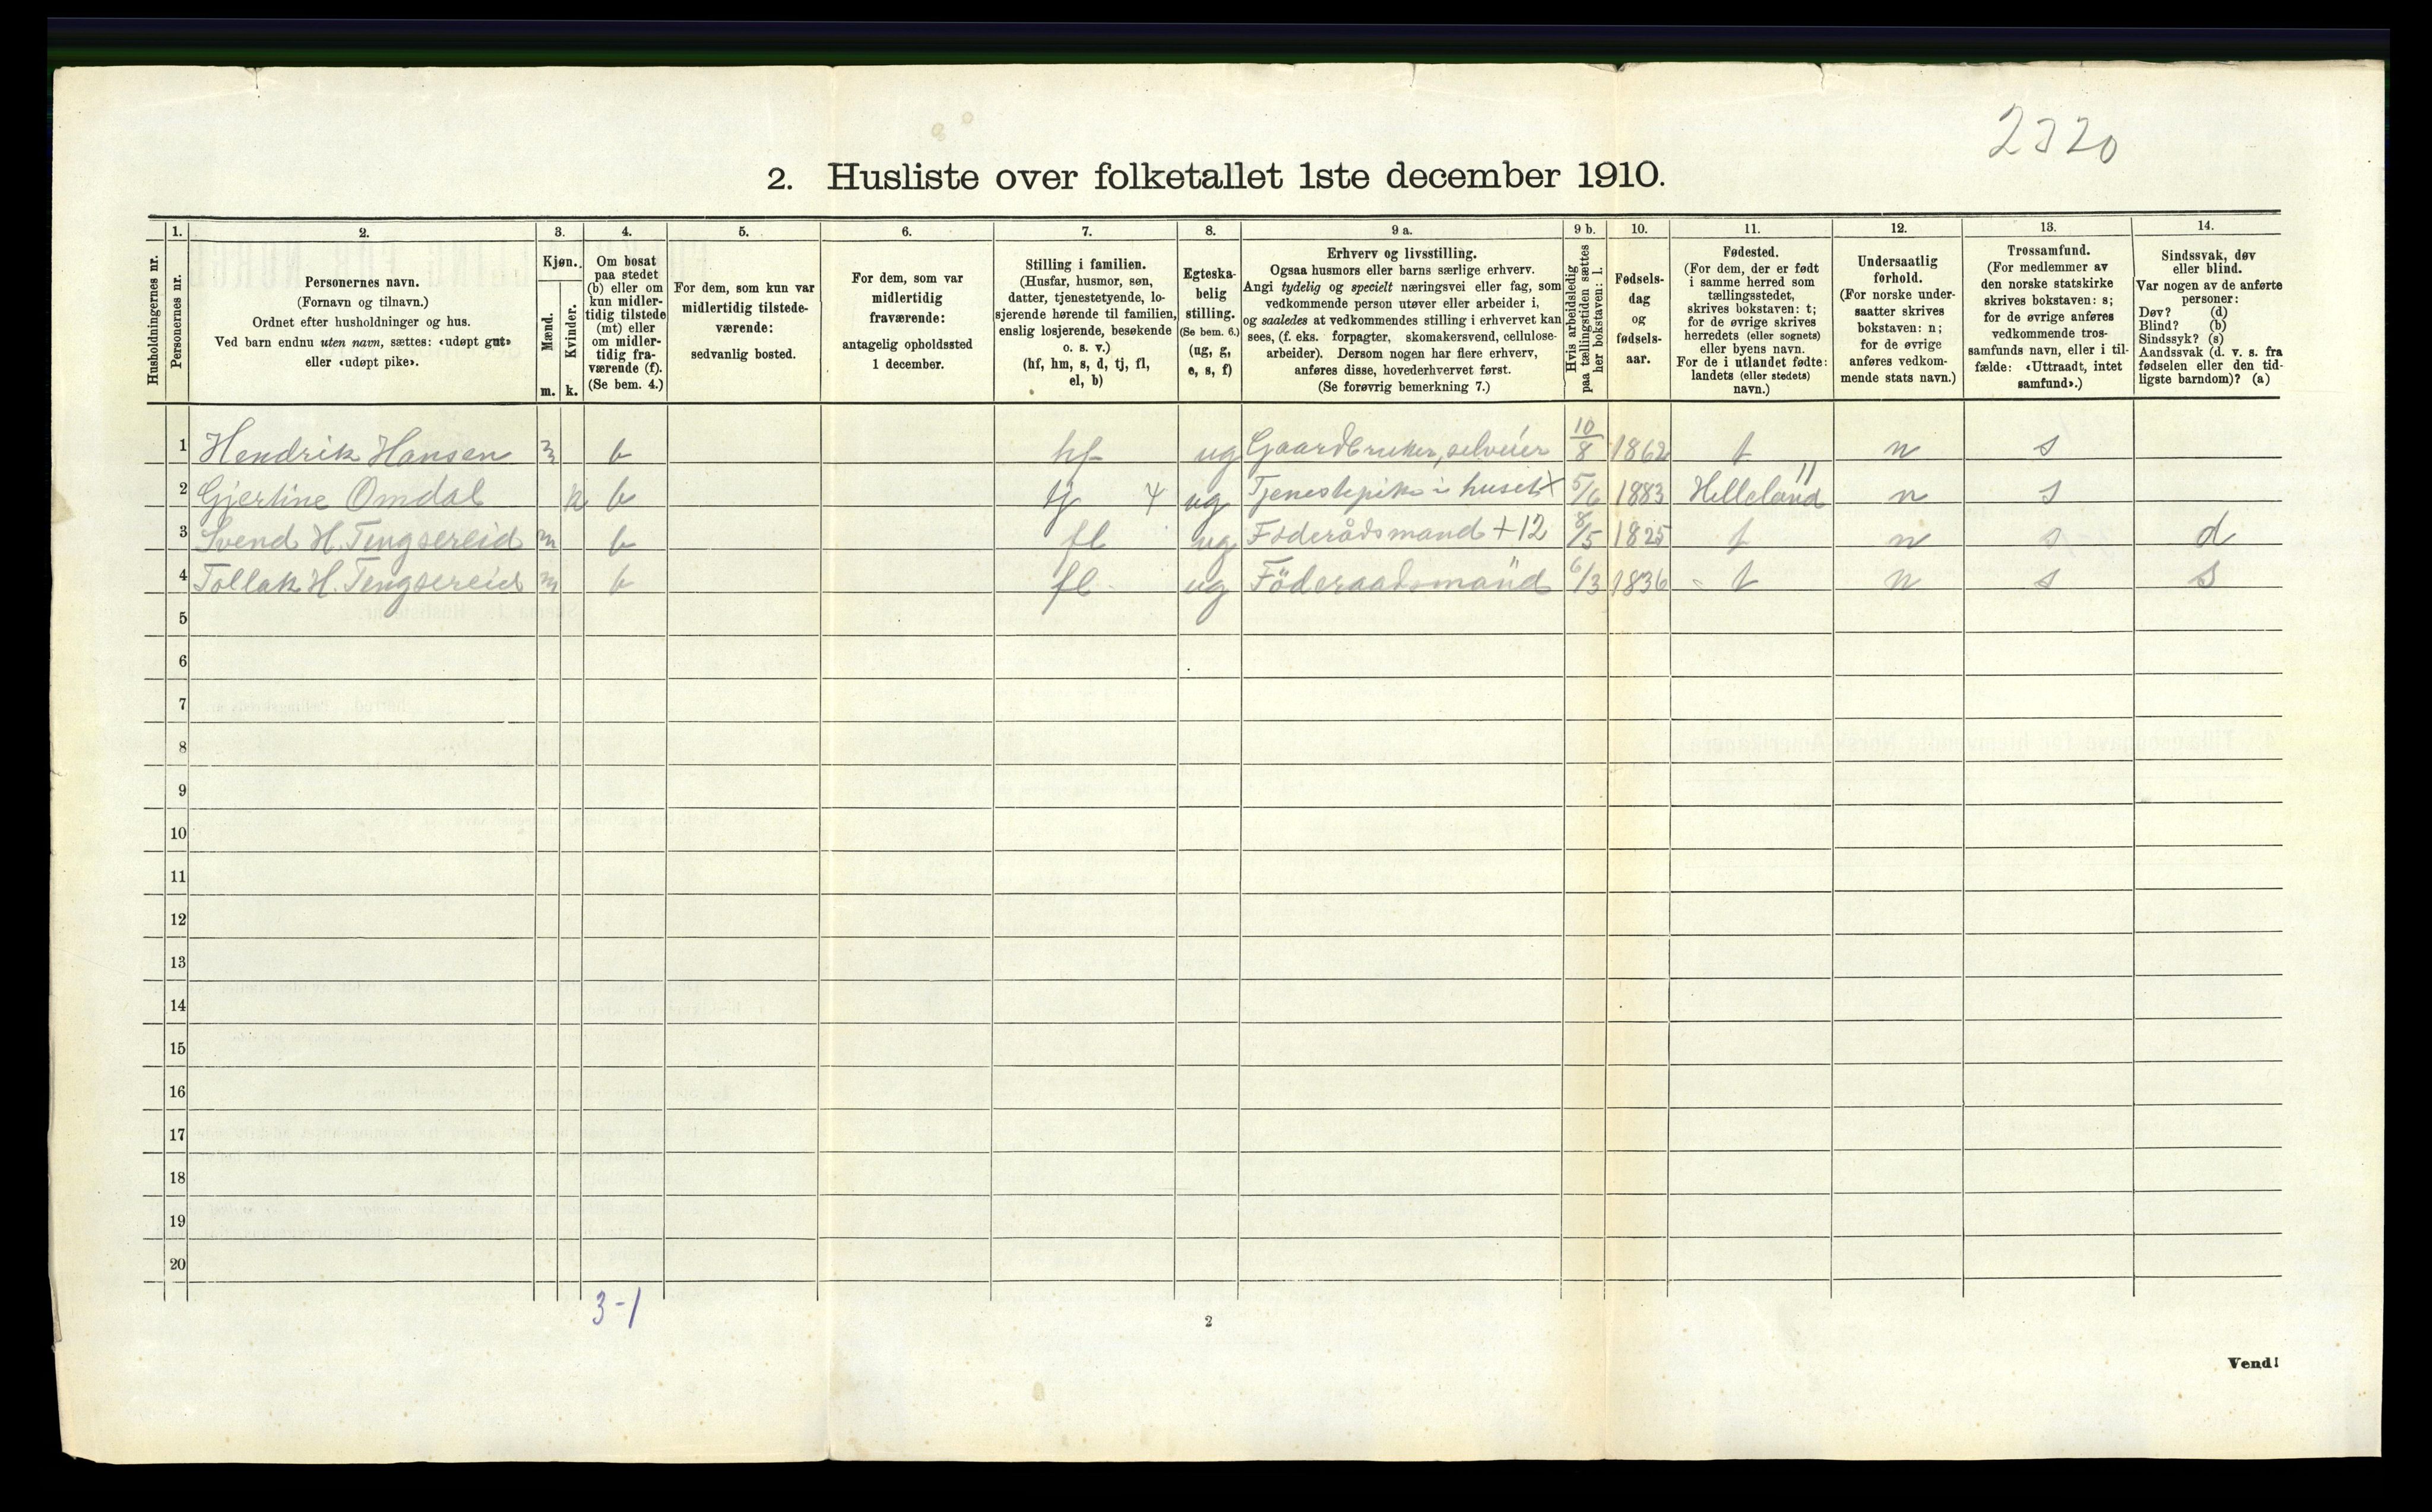 2320
2. Husliste over folketallet 1ste december 1910.
Husholdningernes nr.
1.
Personernes nr.
2.
Personernes navn.
(Fornavn og tilnavn.)
Ordnet efter husholdninger og hus.
Ved barn endnu uten navn, sættes: «udøpt gut»
eller «udøpt pike».
3.
Kjøn.
Mænd.
m.
Kvinder.
k.
4.
Om bosat
paa stedet
(b) eller om
kun midler-
tidig tilstede
(mt) eller
om midler-
tidig fra-
værende (f).
(Se bem. 4.)
5.
For dem, som kun var
midlertidig tilstede-
værende:
sedvanlig bosted.
6.
For dem, som var
midlertidig
fraværende:
antagelig opholdssted
1 december.
7.
Stilling i familien.
(Husfar, husmor, søn,
datter, tjenestetyende, lo-
sjerende hørende til familien,
enslig losjerende, besøkende
o. s. v.)
(hf, hm, s, d, tj, fl,
el, b)
8.
Egteska-
belig
stilling.
(Se bem. 6.)
(ug, g,
e, s, f)
9 a.
Erhverv og livsstilling.
Ogsaa husmors eller barns særlige erhverv.
Angi tydelig og specielt næringsvei eller fag, som
vedkommende person utøver eller arbeider i,
og saaledes at vedkommendes stilling i erhvervet kan
sees, (f. eks. forpagter, skomakersvend, cellulose-
arbeider). Dersom nogen har flere erhverv,
anføres disse, hovederhvervet først.
(Se forøvrig bemerkning 7.)
9 b.
Hvis arbeidsledig
paa tællingstiden sættes
her bokstaven: l.
10.
Fødsels-
dag
og
fødsels-
aar.
11.
Fødested.
(For dem, der er født
i samme herred som
tællingsstedet,
skrives bokstaven: t;
for de øvrige skrives
herredets (eller sognets)
eller byens navn.
For de i utlandet fødte:
landets (eller stedets)
navn.)
12.
Undersaatlig
forhold.
(For norske under-
saatter skrives
bokstaven: n;
for de øvrige
anføres vedkom-
mende stats navn.)
13.
Trossamfund.
(For medlemmer av
den norske statskirke
skrives bokstaven: s;
for de øvrige anføres
vedkommende tros-
samfunds navn, eller i til-
fælde: «Uttraadt, intet
samfund».)
14.
Sindssvak, døv
eller blind.
Var nogen av de anførte
personer:
Døv? (d)
Blind? (b)
Sindssyk? (s)
Aandssvak (d. v. s. fra
fødselen eller den tid-
ligste barndom)? (a)
1 Hendrik Hansen m b hf ug Gaardbruker, selveier 10/8 1862 t n s
2 Gjertine Omdal k b tj 4 ug Tjenestepike i huset x 5/6 1883 Helleland 11 n s
3 Svend H. Tengsereid m b fl ug Föderådsmand +12 8/5 1825 t n s d
4 Tollak H. Tengsereid m b fl ug Föderaadsmand 6/3 1836 t n s s
5
6
7
8
9
10
11
12
13
14
15
16
17
18
19
20
3-1
2
Vend!